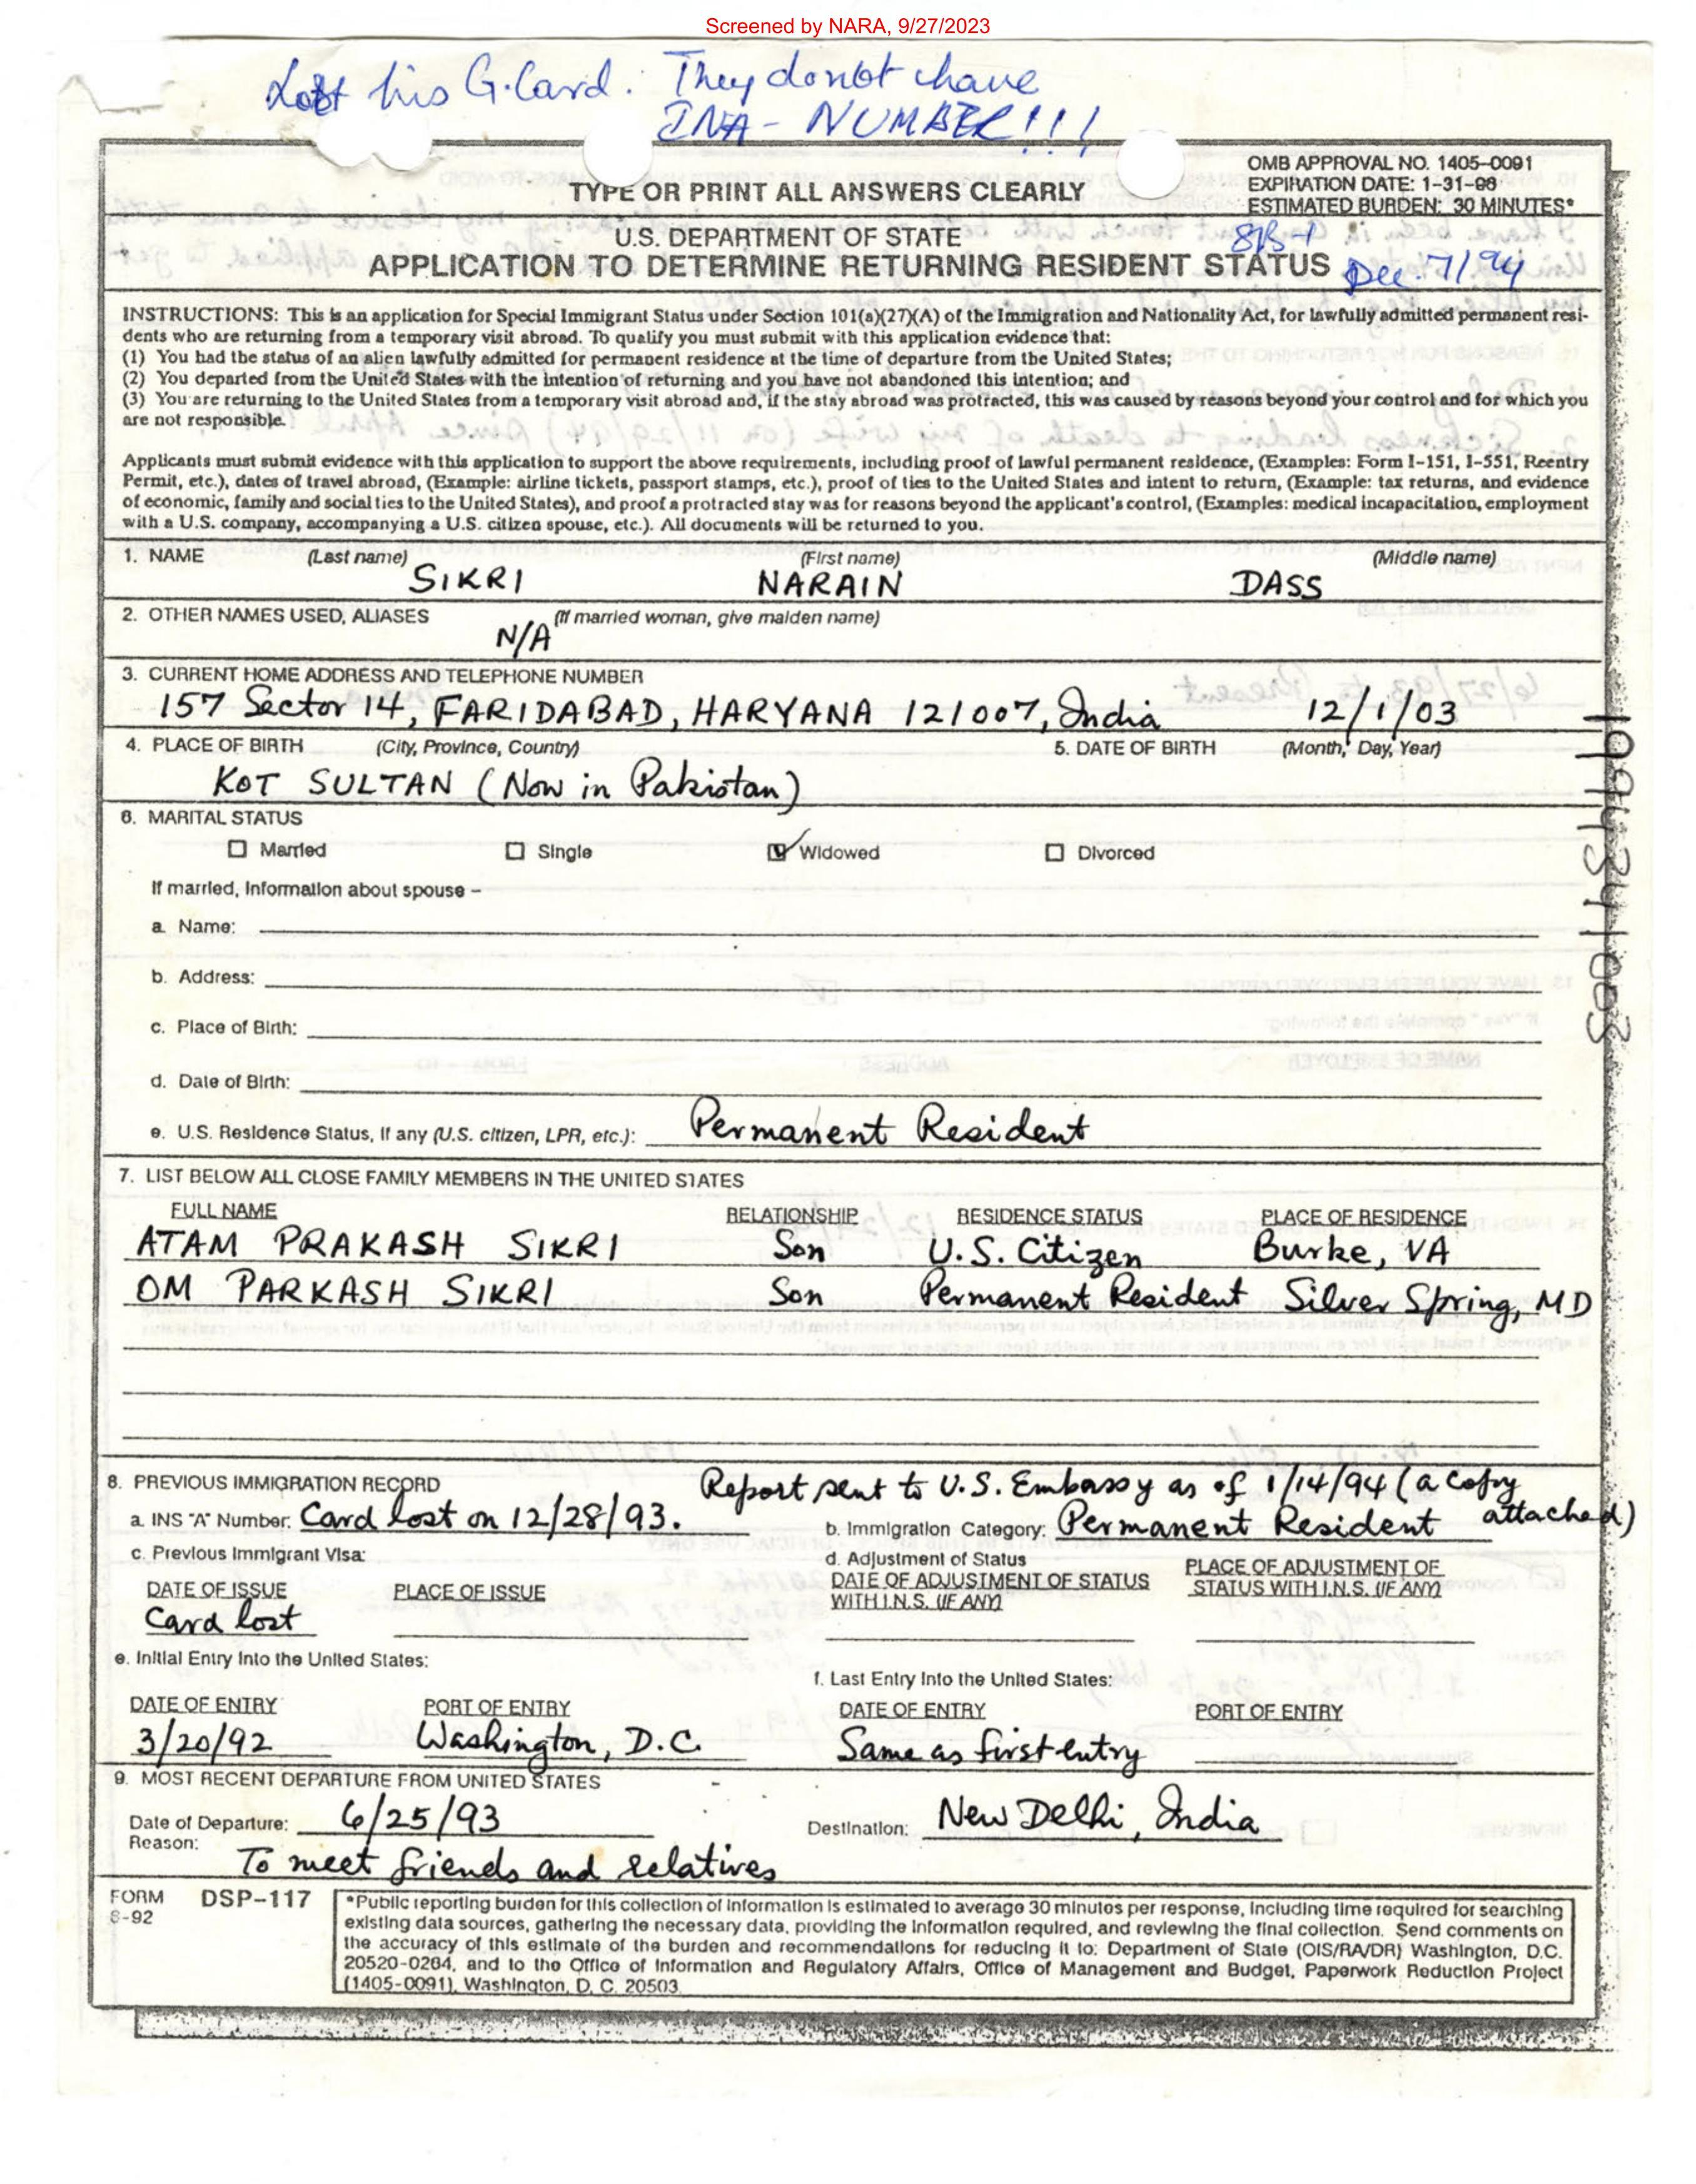 Screened by NARA, 9/27/2023
Lost his G.Card. They donot have
INA - NUMBER!!!
OMB APPROVAL NO. 1405-0091
EXPIRATION DATE: 1-31-96
ESTIMATED BURDEN: 30 MINUTES*
TYPE OR PRINT ALL ANSWERS CLEARLY
U.S. DEPARTMENT OF STATE
SB-1
APPLICATION TO DETERMINE RETURNING RESIDENT STATUS
Dec. 7/94
INSTRUCTIONS: This is an application for Special Immigrant Status under Section 101(a)(27)(A) of the Immigration and Nationality Act, for lawfully admitted permanent resi-
dents who are returning from a temporary visit abroad. To qualify you must submit with this application evidence that:
(1) You had the status of an alien lawfully admitted for permanent residence at the time of departure from the United States;
(2) You departed from the United States with the intention of returning and you have not abandoned this intention; and
(3) You are returning to the United States from a temporary visit abroad and, if the stay abroad was protracted, this was caused by reasons beyond your control and for which you
are not responsible.
Applicants must submit evidence with this application to support the above requirements, including proof of lawful permanent residence, (Examples: Form I-151, I-551, Reentry
Permit, etc.), dates of travel abroad, (Example: airline tickets, passport stamps, etc.), proof of ties to the United States and intent to return, (Example: tax returns, and evidence
of economic, family and social ties to the United States), and proof a protracted stay was for reasons beyond the applicant's control, (Examples: medical incapacitation, employment
with a U.S. company, accompanying a U.S. citizen spouse, etc.). All documents will be returned to you.
1. NAME (Last name) (First name) (Middle name)
SIKRI NARAIN DASS
2. OTHER NAMES USED, ALIASES (If married woman, give maiden name)
N/A
3. CURRENT HOME ADDRESS AND TELEPHONE NUMBER
157 Sector 14, FARIDABAD, HARYANA 121007, India 12/1/03
4. PLACE OF BIRTH (City, Province, Country) 5. DATE OF BIRTH (Month, Day, Year)
KOT SULTAN (Now in Pakistan)
6. MARITAL STATUS
Married Single Widowed Divorced
If married, information about spouse –
a. Name:
b. Address:
c. Place of Birth:
d. Date of Birth:
e. U.S. Residence Status, if any (U.S. citizen, LPR, etc.): Permanent Resident
7. LIST BELOW ALL CLOSE FAMILY MEMBERS IN THE UNITED STATES
FULL NAME RELATIONSHIP RESIDENCE STATUS PLACE OF RESIDENCE
ATAM PRAKASH SIKRI Son U.S. Citizen Burke, VA
OM PARKASH SIKRI Son Permanent Resident Silver Spring, MD
8. PREVIOUS IMMIGRATION RECORD Report sent to U.S. Embassy as of 1/14/94 (a copy
attached)
a. INS "A" Number: Card lost on 12/28/93. b. Immigration Category: Permanent Resident
c. Previous Immigrant Visa: d. Adjustment of Status
DATE OF ISSUE PLACE OF ISSUE DATE OF ADJUSTMENT OF STATUS WITH I.N.S. (IF ANY) PLACE OF ADJUSTMENT OF STATUS WITH I.N.S. (IF ANY)
Card lost
e. Initial Entry Into the United States: f. Last Entry Into the United States:
DATE OF ENTRY PORT OF ENTRY DATE OF ENTRY PORT OF ENTRY
3/20/92 Washington, D.C. Same as first entry
9. MOST RECENT DEPARTURE FROM UNITED STATES
Date of Departure: 6/25/93 Destination: New Delhi, India
Reason: To meet friends and relatives
FORM DSP-117
8-92
*Public reporting burden for this collection of information is estimated to average 30 minutes per response, including time required for searching
existing data sources, gathering the necessary data, providing the information required, and reviewing the final collection. Send comments on
the accuracy of this estimate of the burden and recommendations for reducing it to: Department of State (OIS/RA/DR) Washington, D.C.
20520-0264, and to the Office of Information and Regulatory Affairs, Office of Management and Budget, Paperwork Reduction Project
(1405-0091), Washington, D. C. 20503